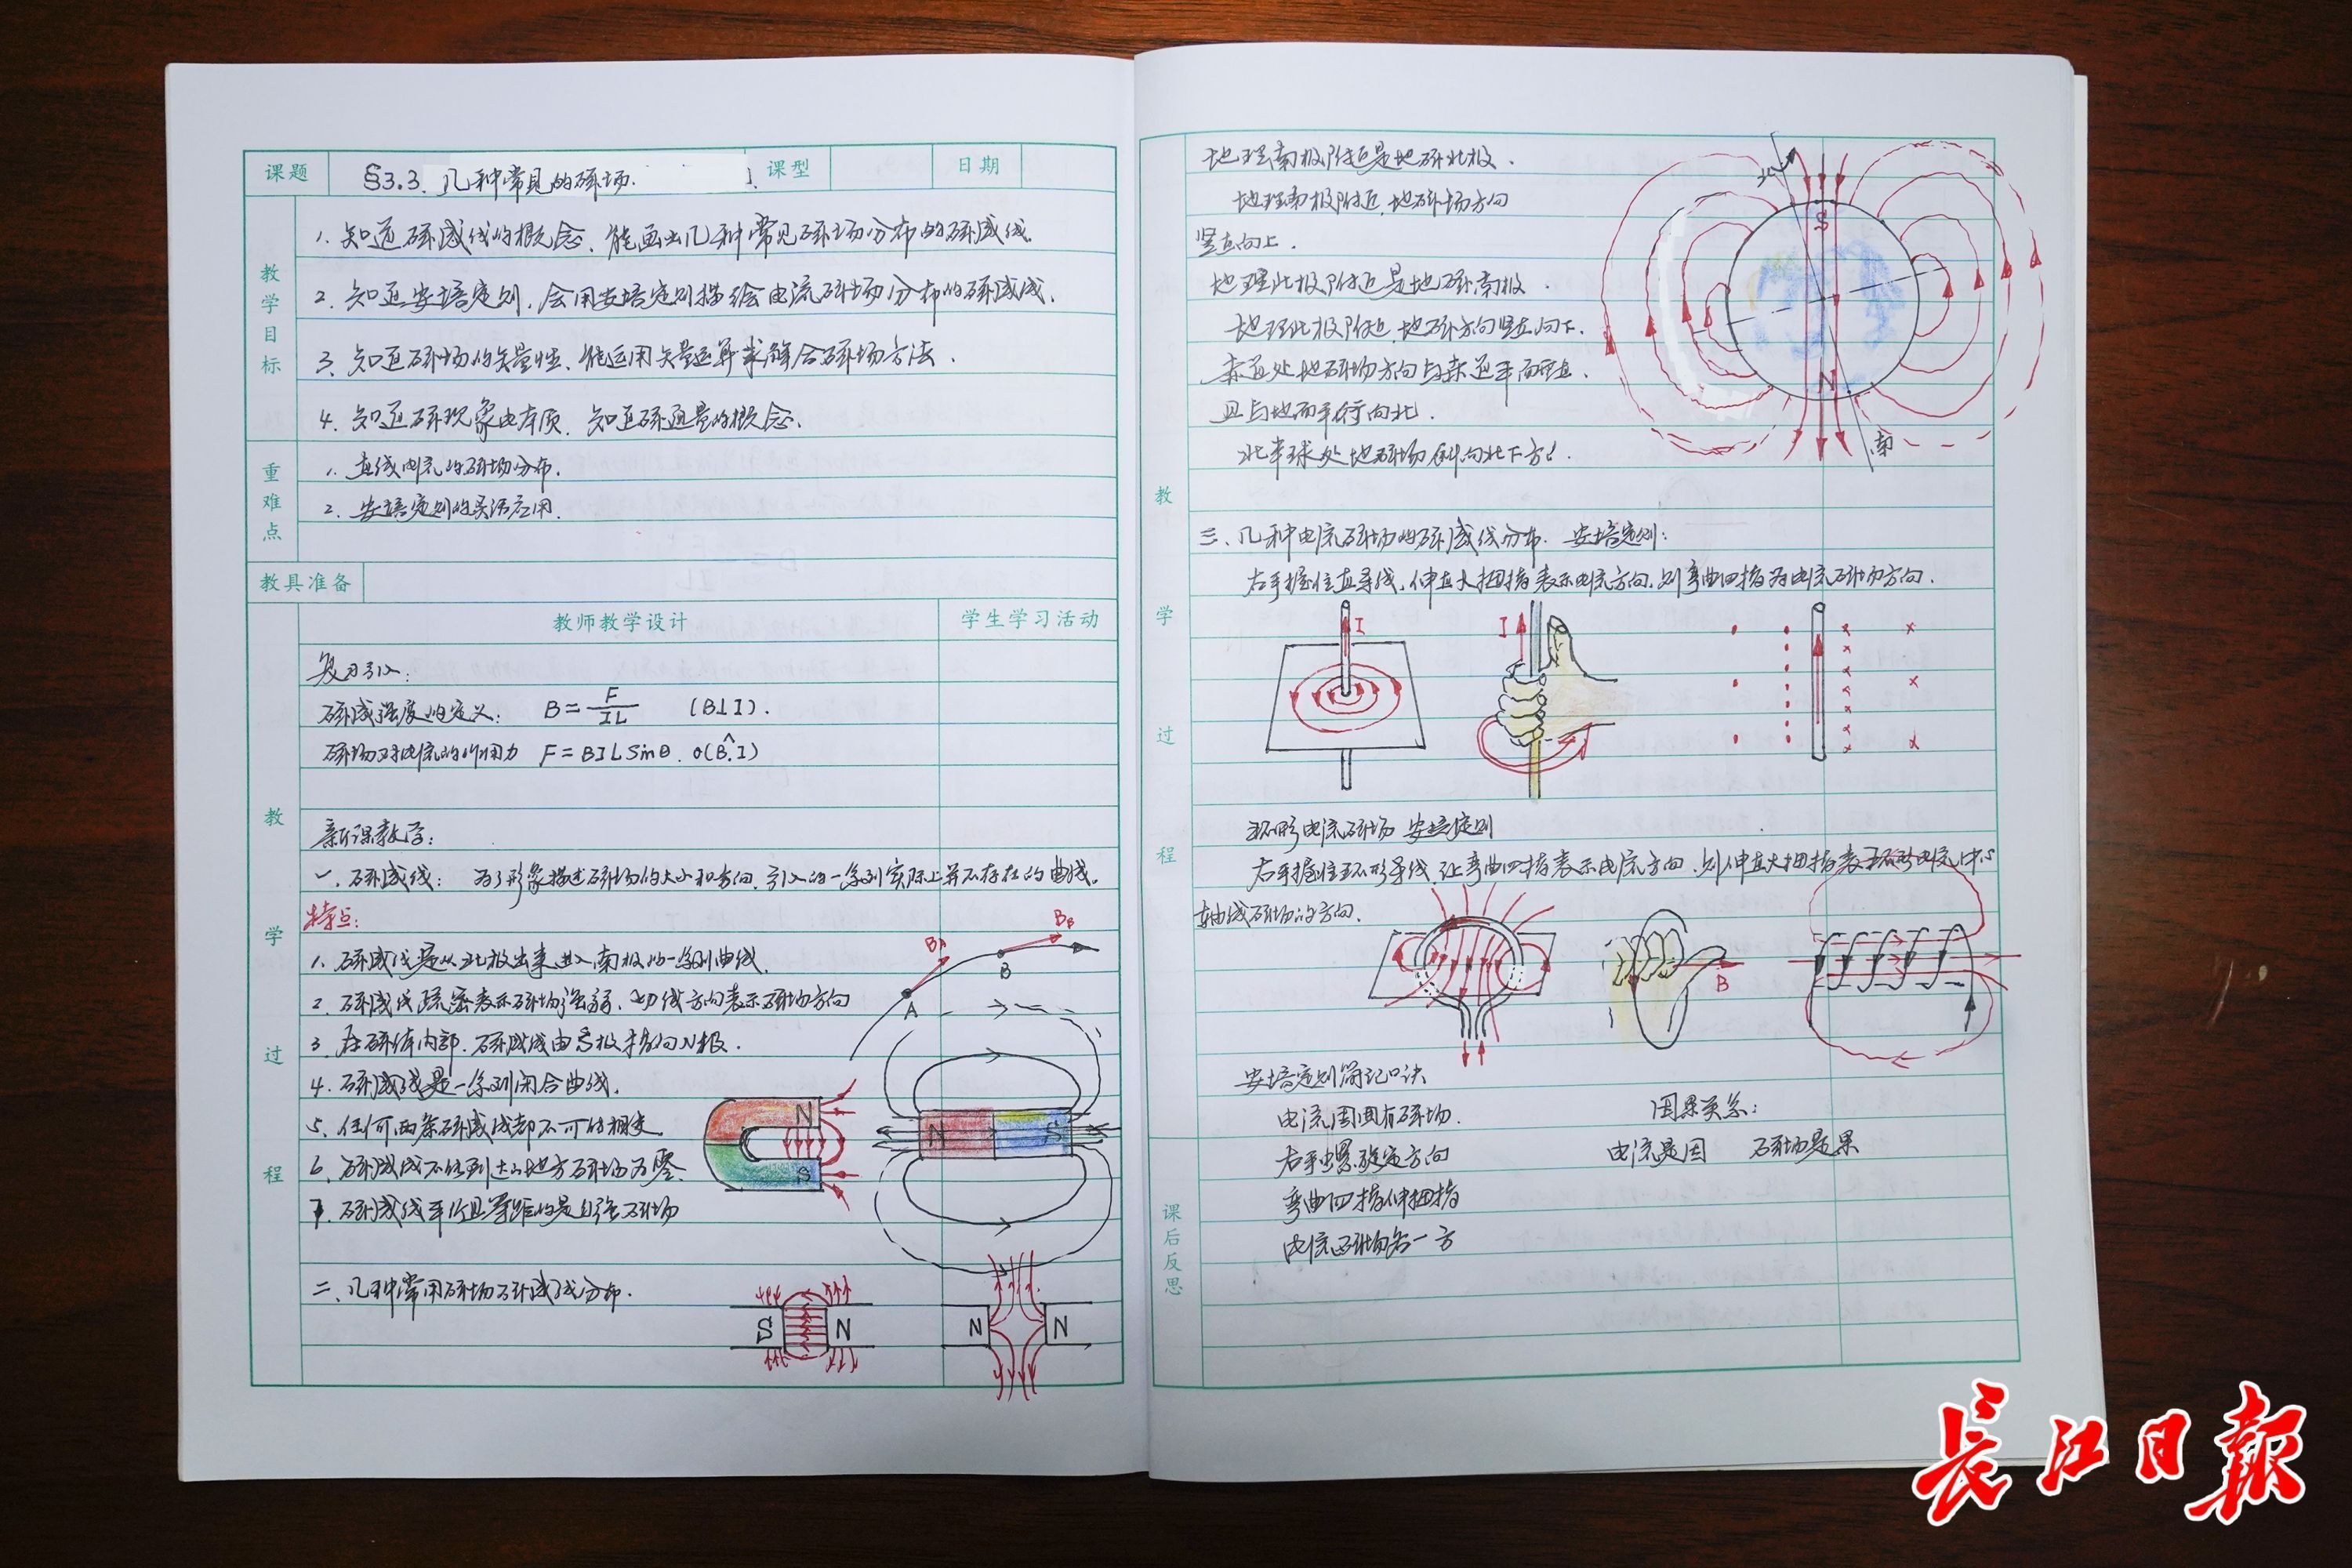 课题 §3.3. 几种常见的磁场. 课型 日期
教学目标
1. 知道磁感线的概念、能画出几种常见磁场分布的磁感线.
2. 知道安培定则, 会用安培定则描绘电流磁场分布的磁感线.
3. 知道磁场的矢量性, 能运用矢量运算求解合磁场方法.
4. 知道磁现象电本质. 知道磁通量的概念.
重难点
1. 直线电流的磁场分布.
2. 安培定则的灵活应用.
教具准备
教师教学设计 学生学习活动
教学过程
复习引入:
磁感强度的定义: B=F/IL (B⊥I).
磁场对电流的作用力 F=BILSinθ.
新课教学:
一. 磁感线: 为了形象描述磁场的大小和方向, 引入的一系列实际上并不存在的曲线.
特点:
1. 磁感线是从北极出来进入南极的一系列曲线.
2. 磁感线疏密表示磁场强弱、切线方向表示磁场方向
3. 在磁体内部. 磁感线由S极指向N极.
4. 磁感线是一系列闭合曲线.
5. 任何两条磁感线都不可能相交.
6. 磁感线不能到达的地方磁场为零.
7. 磁感线平行且等距的是匀强磁场
A B
N S
N S
二、几种常用磁场磁感线分布.
S N
N N
地理南极附近是地磁北极.
地理南极附近, 地磁场方向
竖直向上.
地理北极附近是地磁南极.
地理北极附近, 地磁方向竖直向下.
赤道处地磁场方向与赤道平面垂直.
且与地面平行向北.
北半球处地磁场斜向北下方!.
北
S
N
南
教学过程
三、几种电流磁场的磁感线分布. 安培定则:
右手握住直导线, 伸直大拇指表示电流方向, 则弯曲四指为电流磁场方向.
I I
环形电流磁场 安培定则
右手握住环形导线, 让弯曲四指表示电流方向, 则伸直大拇指表示环形电流中心
轴线磁场的方向.
B
安培定则简记口诀
电流周围有磁场.
右手螺旋定方向
弯曲四指伸拇指
电流磁场各一方
因果关系:
电流是因 磁场是果
课后反思
长江日报